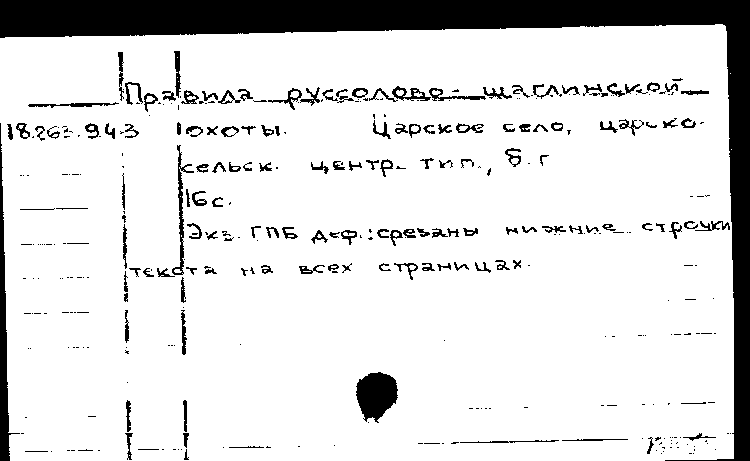 Правила руссолово-щаглинской
18.263.943 охоты. Царское село, царско-
сельск. центр. тип., б.г
16с.
Экз. ГПБ деф.: срезаны нижние строчки
текста на всех страницах.